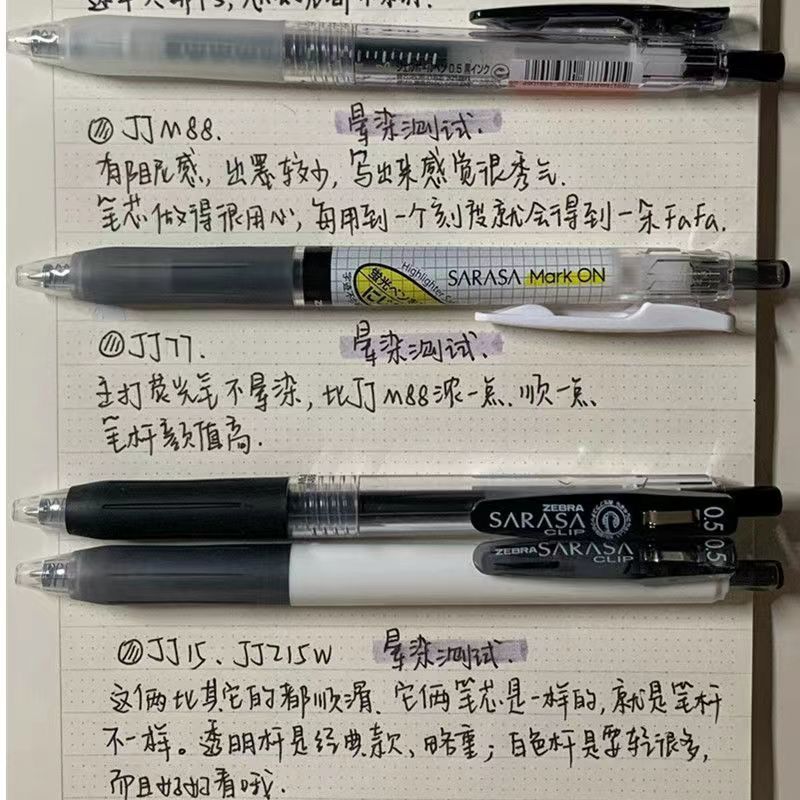 ジェルボールペン 0.5 黒インク
JJM88. 晕染测试.
有阻尼感, 出墨较少, 写出来感觉很秀气.
笔芯做得很用心, 每用到一个刻度就会得到一朵FaFa.
Highlighter
蛍光ペン
SARASA Mark ON
JJ77. 晕染测试.
主打荧光笔不晕染, 比JJM88浓一点、顺一点
笔杆颜值高.
ZEBRA
SARASA
CLIP
0.5
ZEBRA SARASA
CLIP
0.5
JJ15、JJZ15W 晕染测试.
这俩比其它的都顺滑、它俩笔芯是一样的, 就是笔杆
不一样。透明杆是经典款、略重; 白色杆是要轻很多,
而且好好看哦.